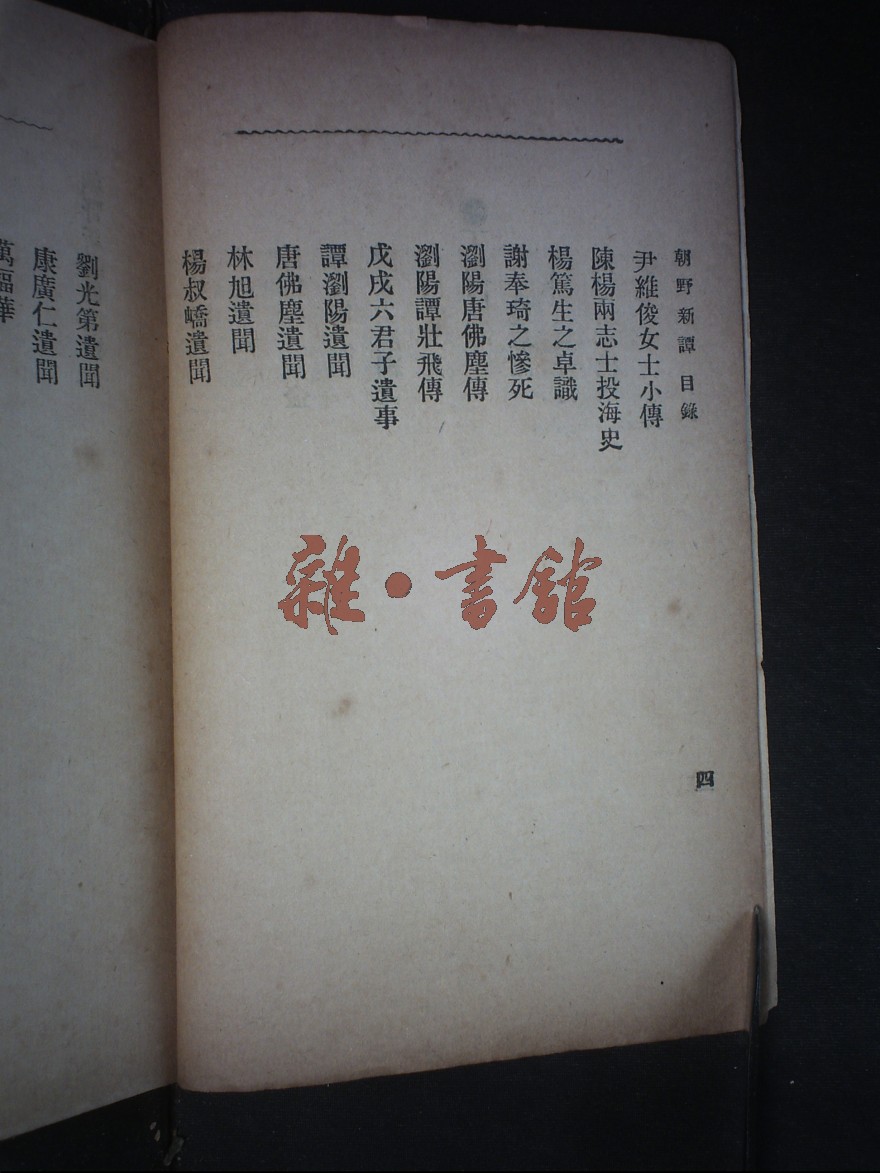 朝野新譚 目錄
尹維俊女士小傳
陳楊兩志士投海史
楊篤生之卓識
謝奉琦之慘死
瀏陽唐佛塵傳
瀏陽譚壯飛傳
戊戌六君子遺事
譚瀏陽遺聞
唐佛塵遺聞
林旭遺聞
楊叔嶠遺聞
四
劉光第遺聞
康廣仁遺聞
萬福華
雜·書館